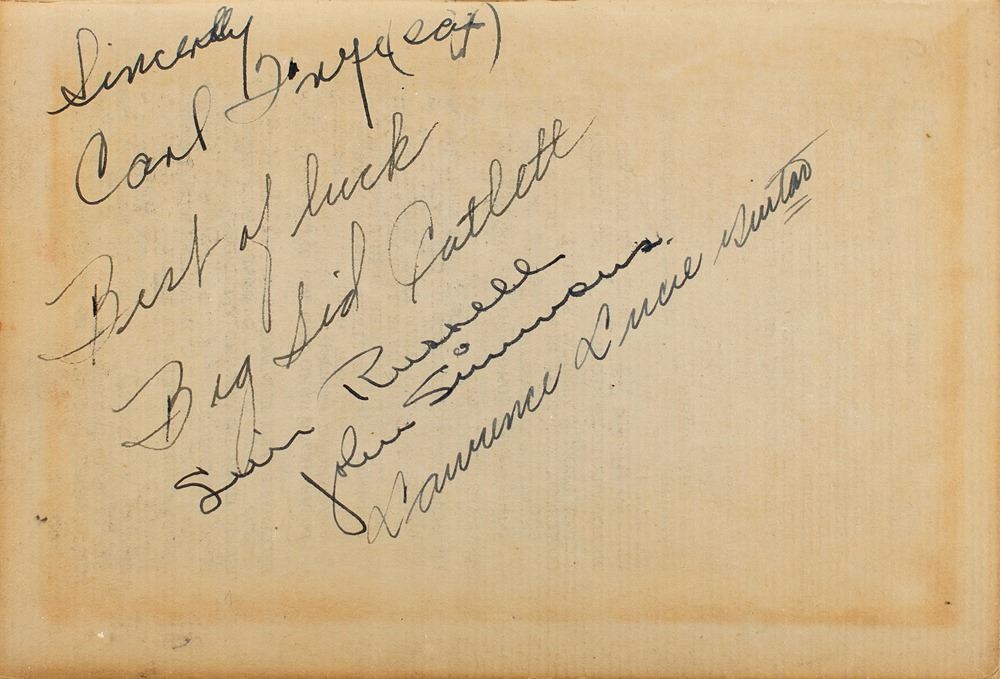 Sincerely
Carl Frye (sax)
Best of luck
Big Sid Catlett
Russell
John Simmons.
Lawrence Lucie guitar